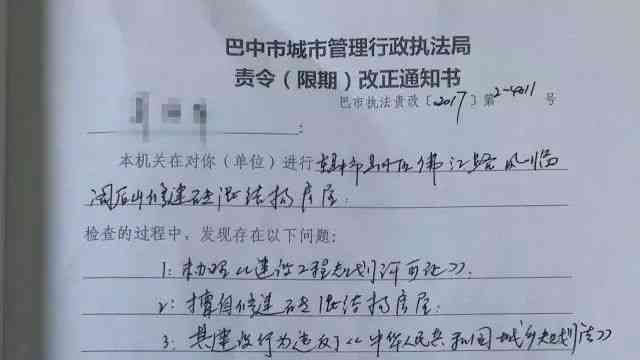 巴中市城市管理行政执法局
责令（限期）改正通知书
巴市执法责改〔2017〕第2-4011号
：
本机关在对你（单位）进行
修建砖混结构房屋
检查的过程中，发现存在以下问题：
1：未办理《建设工程规划许可证》。
2：擅自修建砖混结构房屋。
3：其建设行为违反了《中华人民共和国城乡规划法》